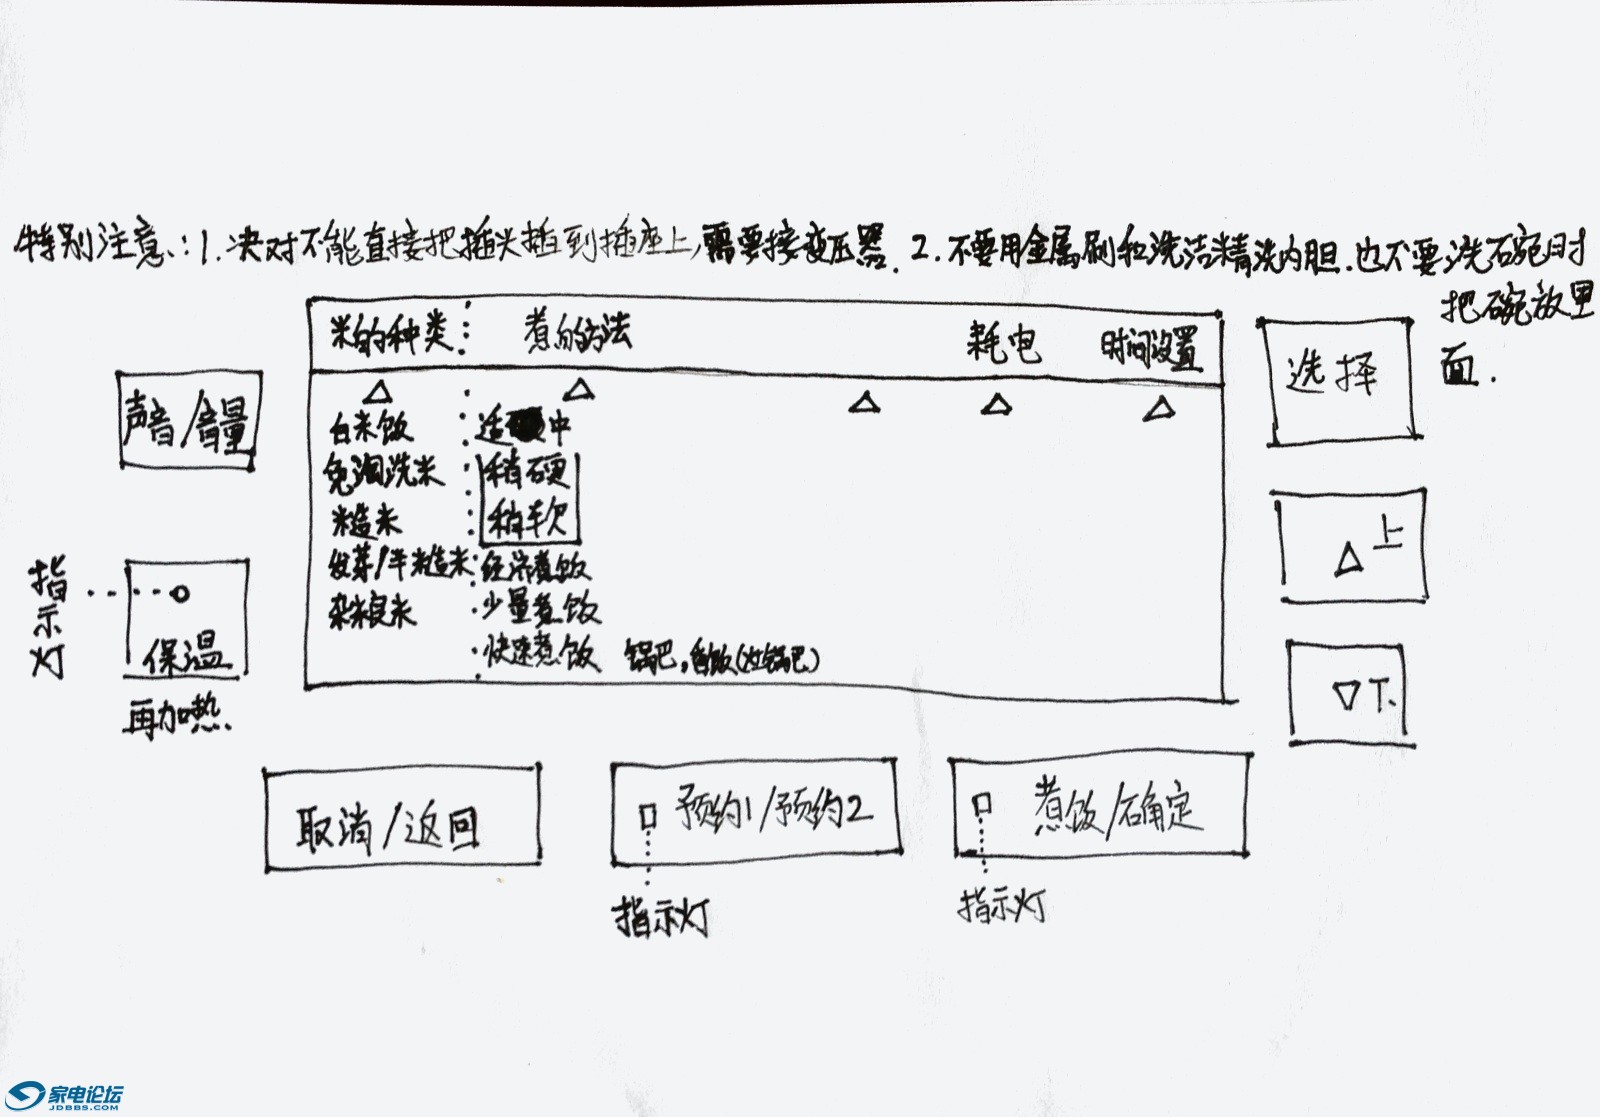 特别注意:1.决对不能直接把插头插到插座上,需要接变压器.2.不要用金属刷和洗洁精洗内胆.也不要洗碗时
把碗放里
面.
米的种类 煮的方法 耗电 时间设置
△ △ △ △ △
白米饭 适中
免淘洗米 稍硬
糙米 稍软
发芽/半糙米 经济煮饭
杂粮米 少量煮饭
快速煮饭 锅巴,香饭(如锅巴)
声音/音量
指示灯
保温
再加热
选择
△上
▽下
取消/返回
预约1/预约2
指示灯
煮饭/确定
指示灯
家电论坛
JDBBS.COM